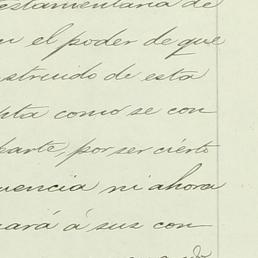 estamentaria de
el poder de que
struido de esta
nta como se con
parte, por ser cierto
uencia ni ahora
ará á sus con